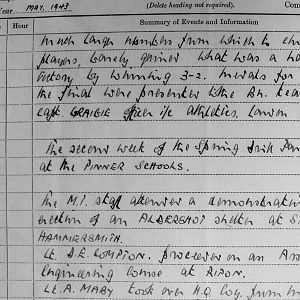 Year MAY, 1943 (Delete heading not required). Com
Hour Summary of Events and Information
much larger numbers from which to ch
players, barely gained what was a ha
victory by winning 3-2. medals for
the final were presented to the Bn. tea
capt CRAIGIE officer i/c athletics, London
The second week of the Spring Drik
at the PINNER SCHOOLS.
The M.I. staff attended a demonstration
erection of an ALDERSHOT shelter at S
HAMMERSMITH.
Lt. D.E. COMPTON. proceeded on an As
Engineering Course at RIPON.
Lt. A. MABY took over H.Q Coy. from